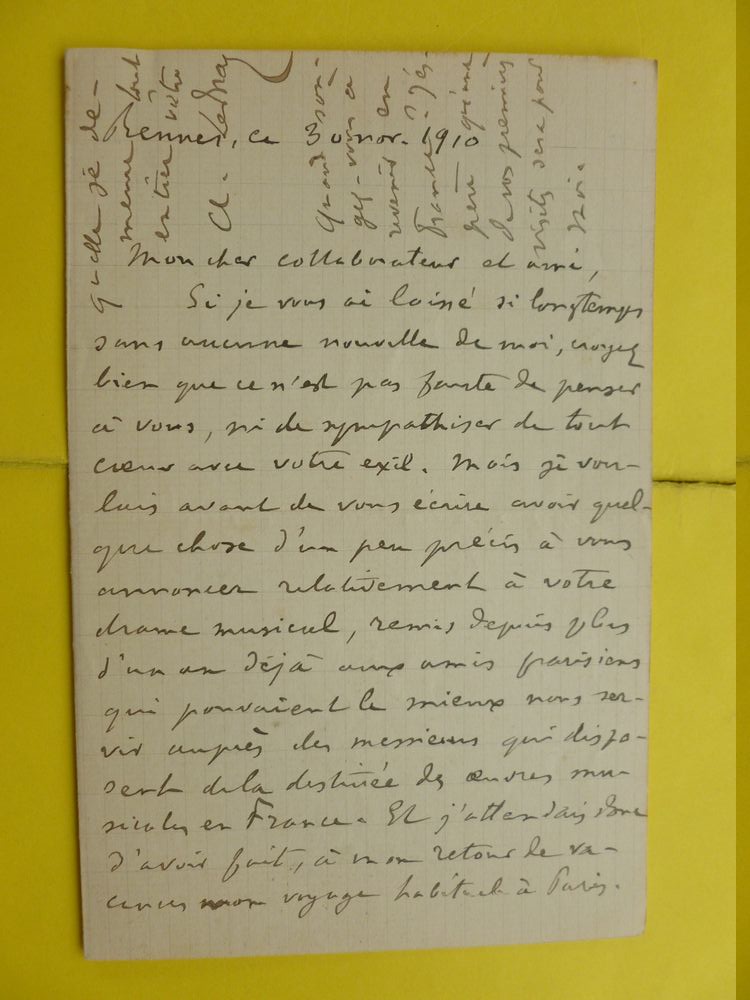 Rennes, ce 3 nov. 1910
Mon cher collaborateur et ami,
Si je vous ai laissé si longtemps
sans aucune nouvelle de moi, croyez
bien que ce n'est pas faute de penser
à vous, ni de sympathiser de tout
cœur avec votre exil. Mais je vou-
lais avant de vous écrire avoir quel-
que chose d'un peu précis à vous
annoncer relativement à votre
drame musical, remis depuis plus
d'un an déjà aux amis parisiens
qui pouvaient le mieux nous ser-
vir auprès des messieurs qui dispo-
sent de la destinée des œuvres mu-
sicales en France. Et j'attendais donc
d'avoir fait, à mon retour de va-
cances mon voyage habituel à Paris.
quelle je de-
meure tout
entier votre
A.
Quand son-
gez-vous à
revenir en
France? J'es-
père qu'une
de vos premières
visites sera pour
moi.